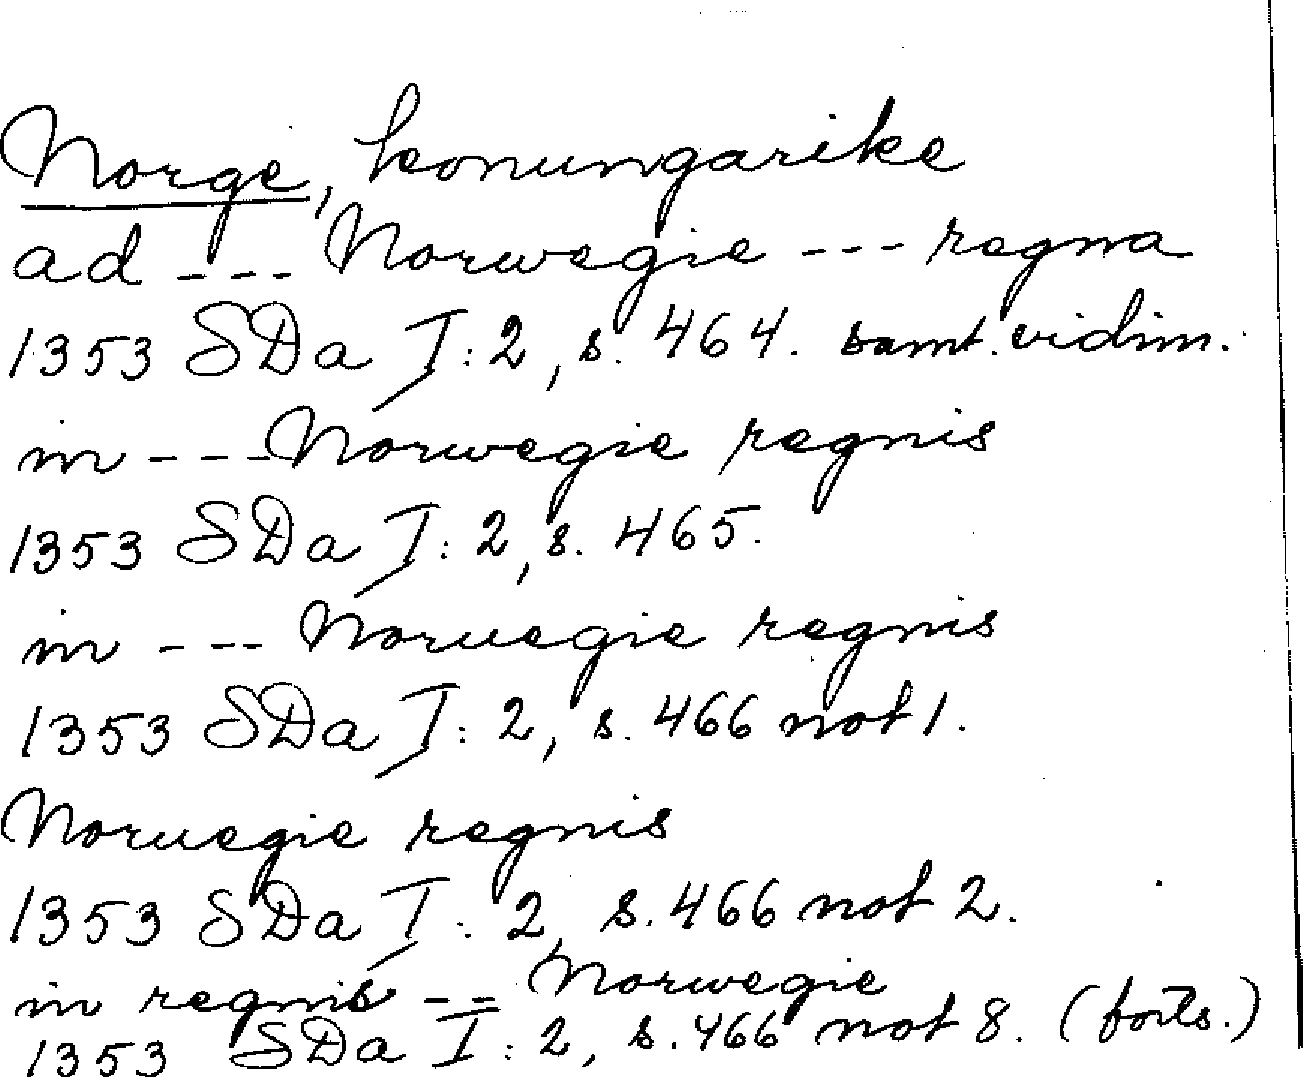 Norge, konungarike
ad --- Norwegie --- regna
1353 SDa I:2, s. 464. samt. vidim.
in --- Norwegie regnis
1353 SDa I:2, s. 465.
in --- Noruegie regnis
1353 SDa I:2, s. 466 not 1.
Noruegie regnis
1353 SDa I:2, s. 466 not 2.
in regnis -- Norwegie
1353 SDa I:2, s. 466 not 8. (forts.)